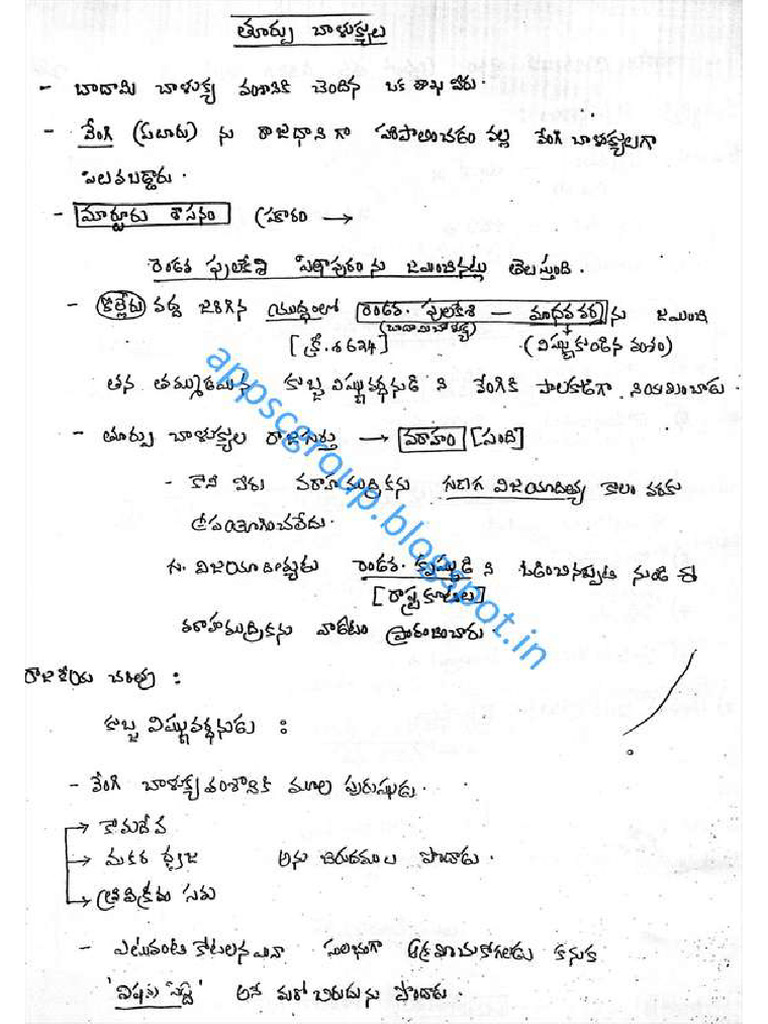 తూర్పు చాళుక్యులు
- బాదామి చాళుక్య వంశానికి చెందిన ఒక శాఖ వీరు.
- వేంగి (ఏలూరు) ను రాజధాని గా పరిపాలించడం వల్ల వేంగి చాళుక్యులుగా
పిలవబడ్డారు.
- మార్టూరు శాసనం (ప్రకారం →
రెండవ పులకేశి పిఠాపురం ను జయించినట్లు తెలుస్తుంది.
- కొల్లేరు వద్ద జరిగిన యుద్ధంలో రెండవ పులకేశి — మాధవ వర్మ ను జయించి
(బాదామి చాళుక్య)
[క్రీ.శ 624] (విష్ణుకుండిన వంశం)
తన తమ్ముడైన కుబ్జ విష్ణువర్ధనుడి ని వేంగికి పాలకుడిగా నియమించాడు.
- తూర్పు చాళుక్యుల రాజచిహ్నం → వరాహం [పంది]
- కానీ వీరు వరాహముద్రికను గుణగ విజయాదిత్య కాలం వరకు
ఉపయోగించలేదు.
గు. విజయాదిత్యుడు రెండవ కృష్ణుడి ని ఓడించినప్పటి నుండి ఈ
[రాష్ట్రకూటుల]
వరాహముద్రికను వాడటం ప్రారంభించారు.
రాజకీయ చరిత్ర :
కుబ్జ విష్ణువర్ధనుడు :
- వేంగి చాళుక్య వంశానికి మూల పురుషుడు.
→ కామదేవ
→ మకర ధ్వజ అను బిరుదములు పొందాడు.
→ త్రివిక్రమ సమ
- ఎటువంటి కోటలనయినా సులభంగా ఆక్రమించుకోగలడు కనుక
'విషమ సిద్ధి' అనే మరో బిరుదును పొందాడు.
appscgroup.blogspot.in